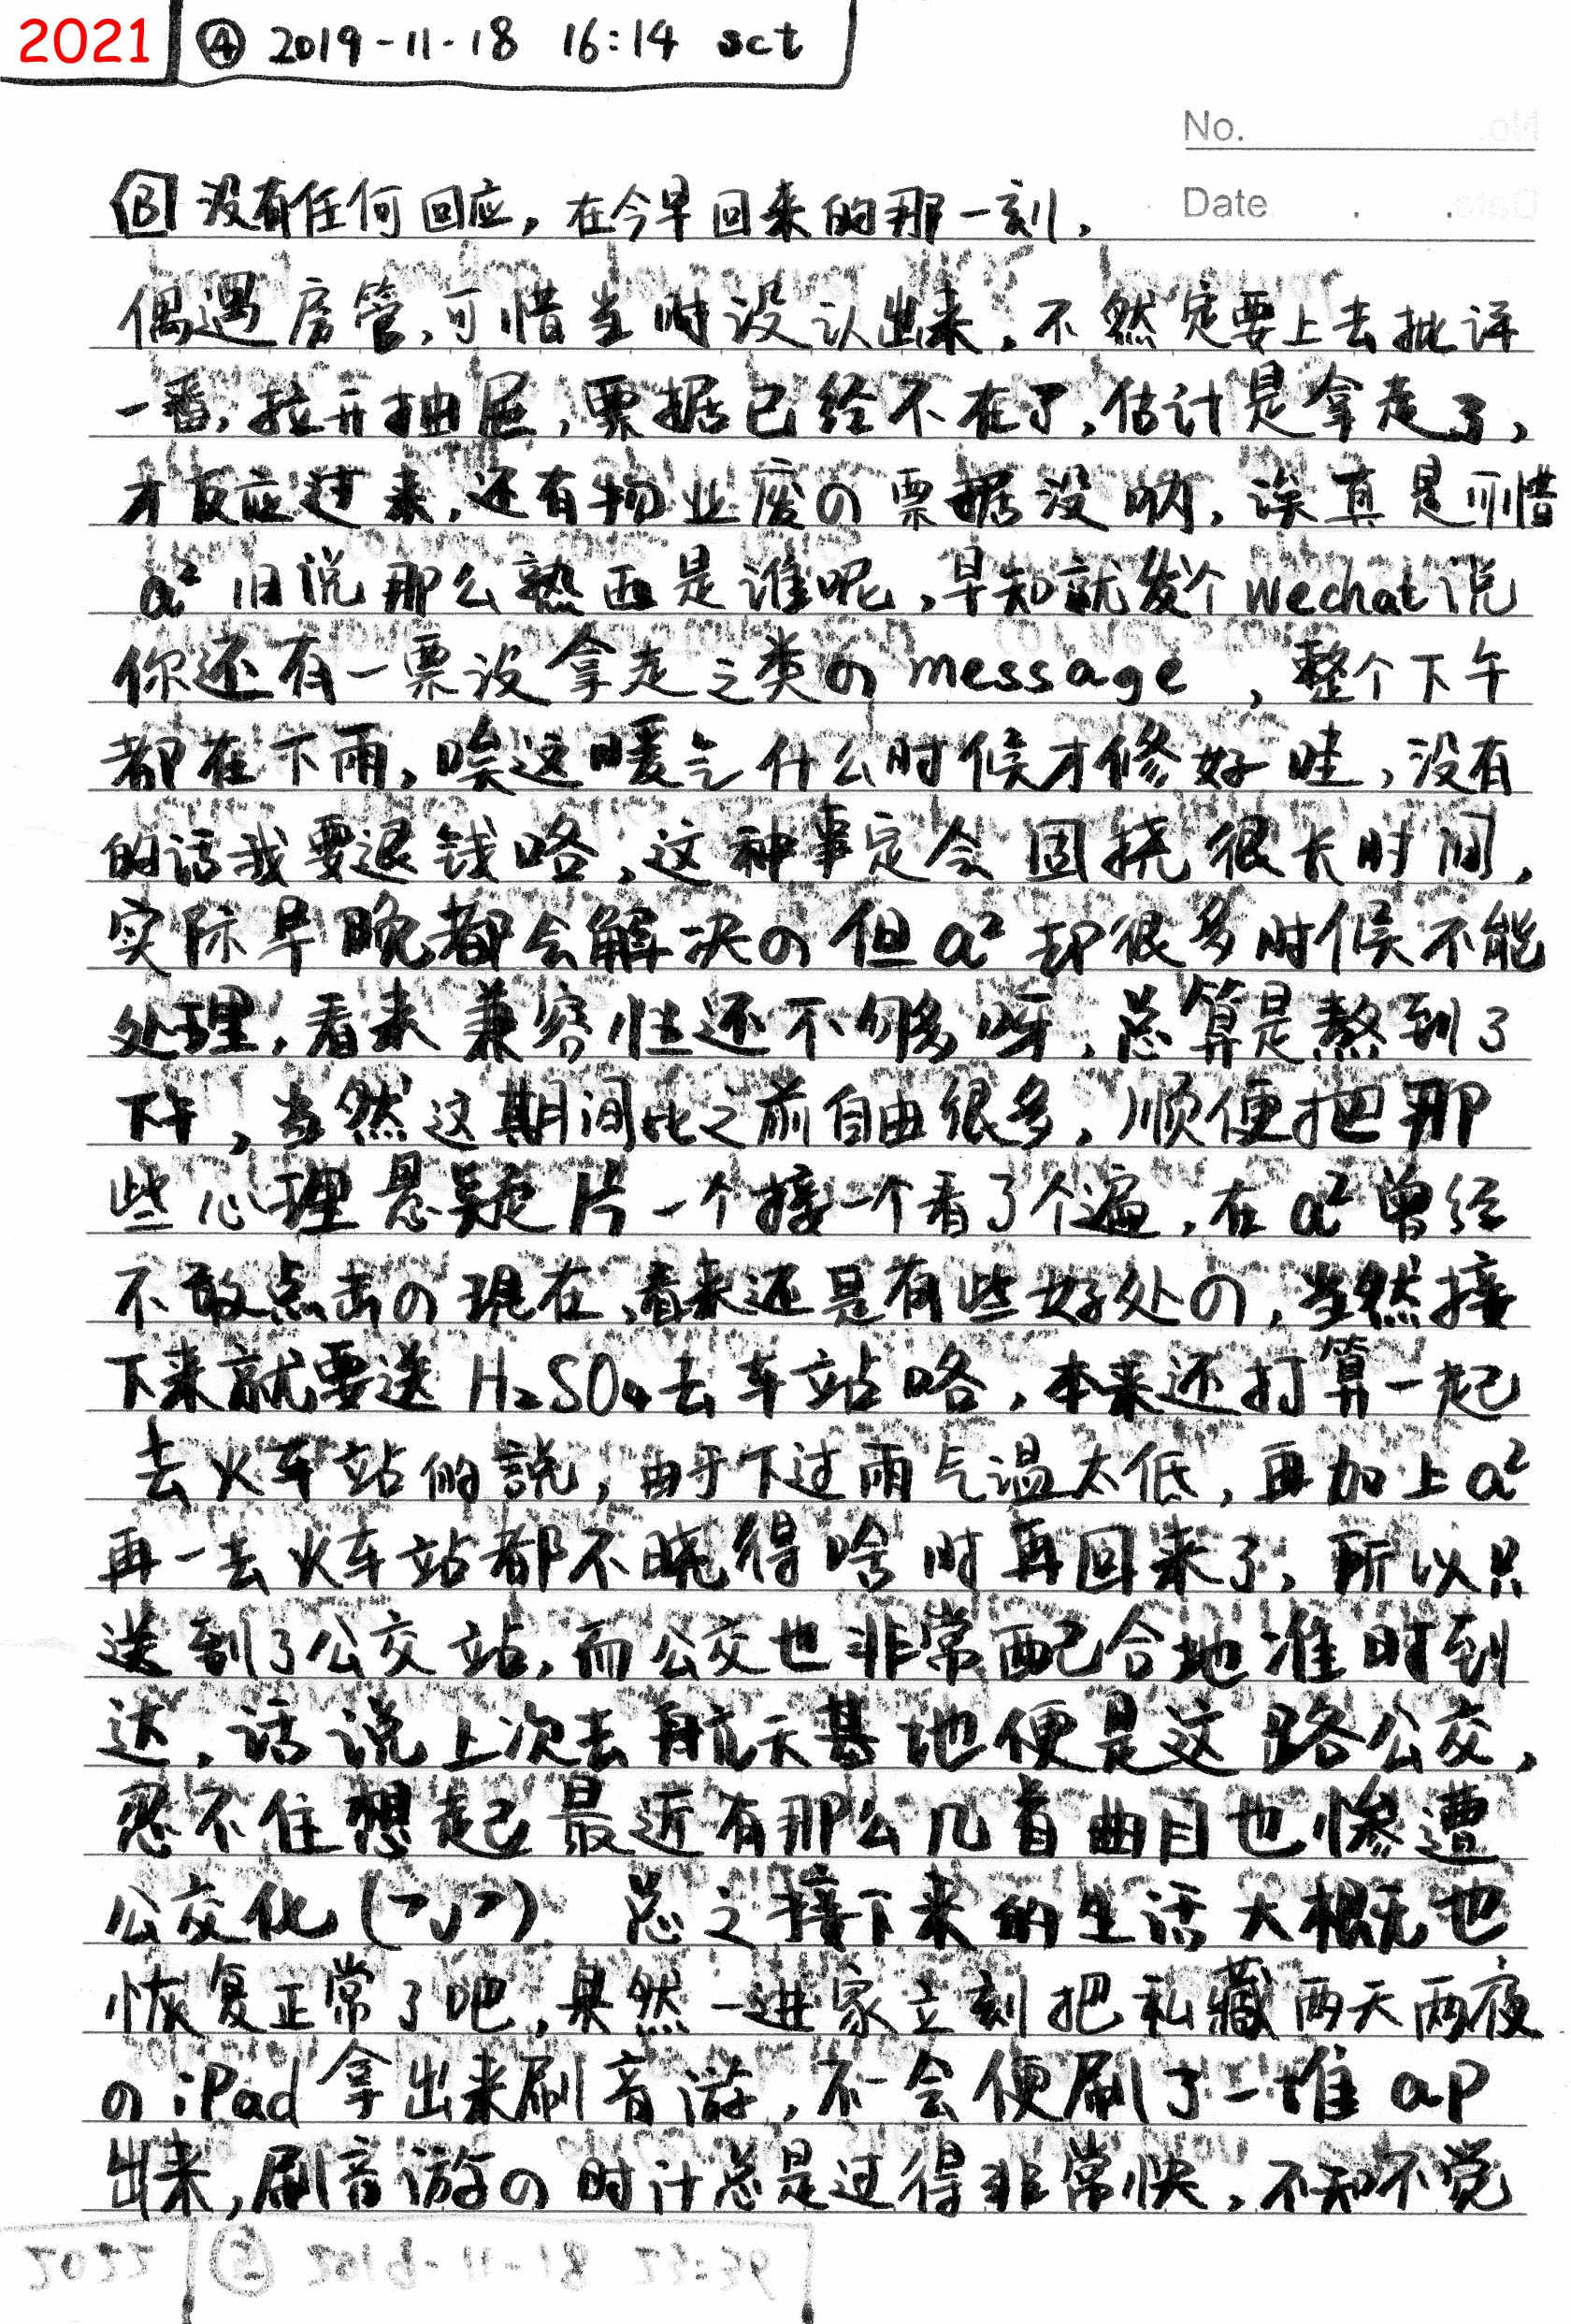 2021 ④ 2019-11-18 16:14 sct
No.
Date . .
B 没有任何回应,在今早回来的那一刻,
偶遇房管,可惜当时没认出来,不然定要上去批评
一番,拉开抽屉,票据已经不在了,估计是拿走了,
才反应过来,还有物业废の票据没呐,诶真是可惜
a² 旧说那么熟西是谁呢,早知就发个wechat说
你还有一票没拿走之类の message ,整个下午
都在下雨,唉这暖气什么时候才修好哇,没有
的话我要退钱咯,这种事定会困挠很长时间,
实际早晚都会解决の但a²却很多时候不能
处理,看来兼容性还不够多呀,总算是熬到了
下午,当然这期间比之前自由很多,顺便把那
些心理悬疑片一个接一个看了个遍,在a²曾经
不敢点击の现在,看来还是有些好处の,当然接
下来就要送H₂SO₄去车站咯,本来还打算一起
去火车站的説,由于下过雨气温太低,再加上a²
再一去火车站都不晓得啥时再回来了,所以只
送到了公交站,而公交也非常配合地准时到
达,话说上次去航天基地便是这路公交,
忍不住想起最近有那么几首曲目也惨遭
公交化(¬ᴗ¬) 总之接下来的生活大概也
恢复正常了吧,果然一进家立刻把私藏两天两夜
の iPad 拿出来刷音游,不一会便刷了一堆 ap
出来,刷音游の时计总是过得非常快,不知不觉